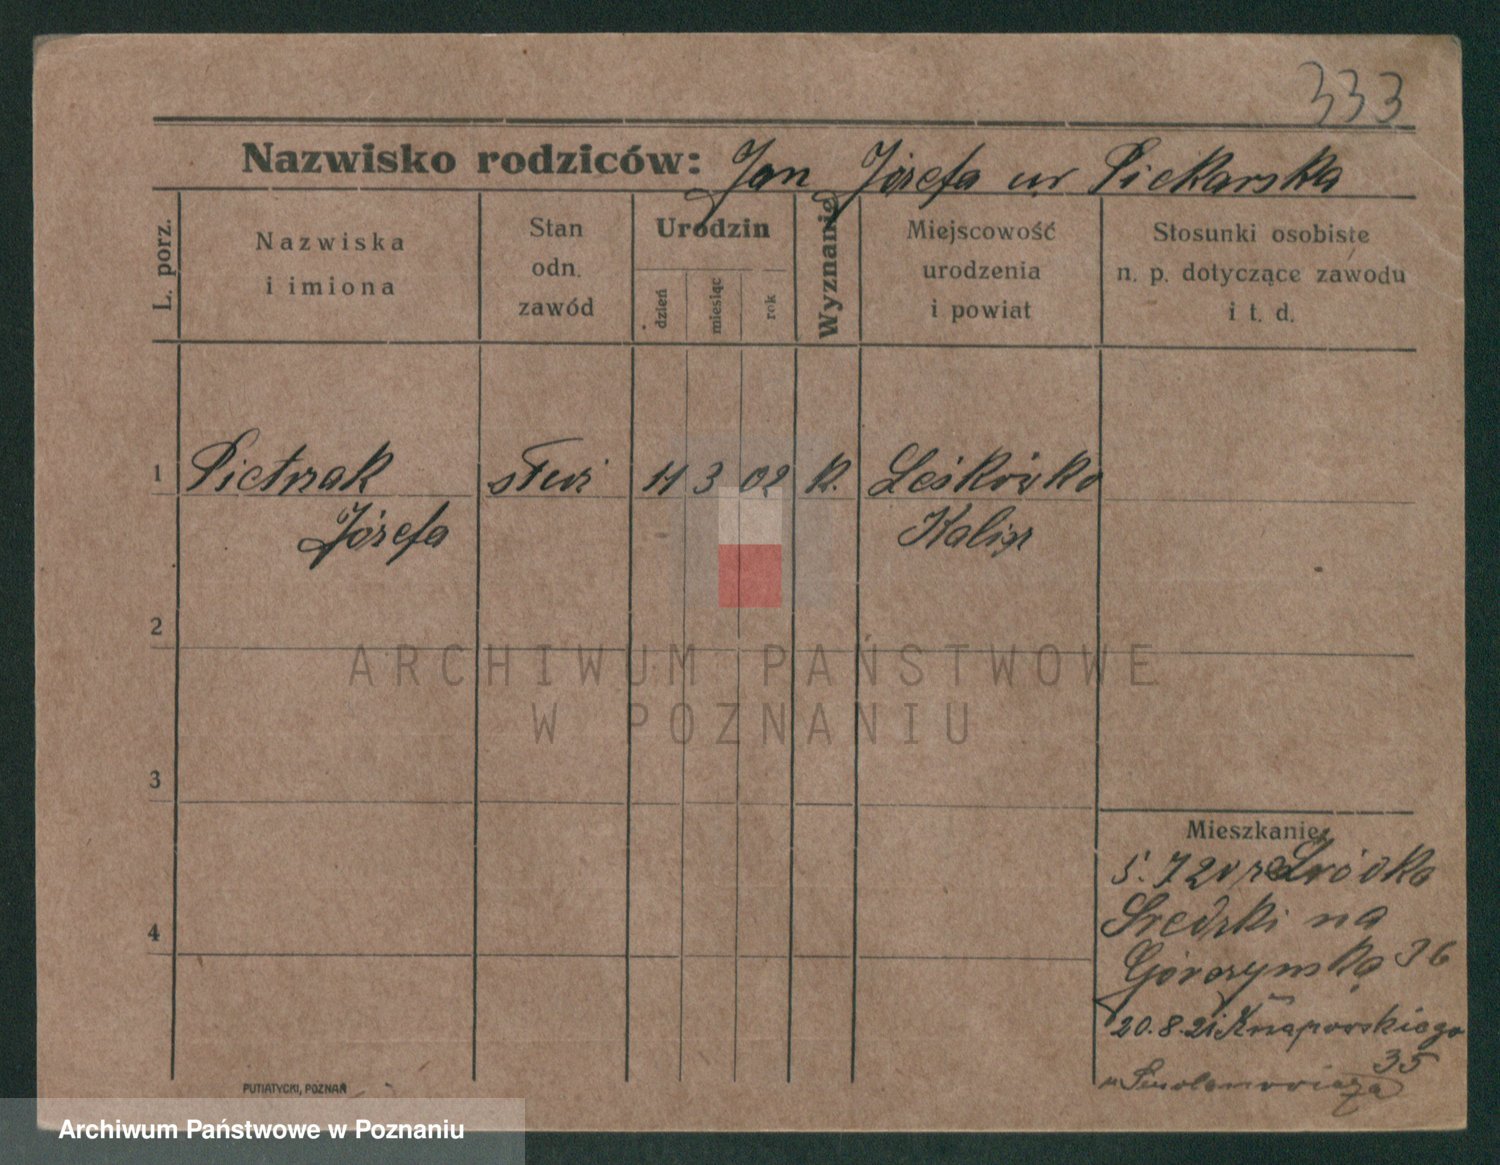 333
Nazwisko rodziców: Jan Józefa ur Piekarska
L. porz.
Nazwiska
i imiona
Stan
odn.
zawód
Urodzin
dzień
miesiąc
rok
Wyznanie
Miejscowość
urodzenia
i powiat
Stosunki osobiste
n. p. dotyczące zawodu
i t. d.
1 Pietrzak służ 11 3 02 k. Leśkówko
Józefa Kalisz
2
3
4
Mieszkanie
Średzki na
Górczyńską 36
20.8.21 Knapowskiego
35
PUTIATYCKI, POZNAŃ
ARCHIWUM PAŃSTWOWE
W POZNANIU
Archiwum Państwowe w Poznaniu